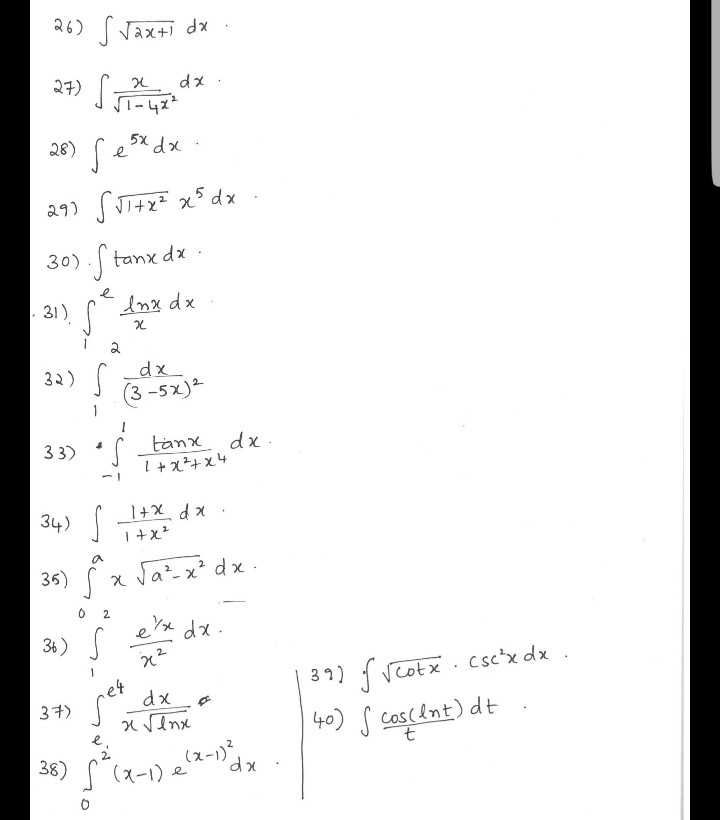 26) ∫ √(2x+1) dx .
27) ∫ x/√(1-4x²) dx .
28) ∫ e^(5x) dx .
29) ∫ √(1+x²) x⁵ dx .
30) ∫ tanx dx .
31) ∫₁^e lnx/x dx
32) ∫₁² dx/(3-5x)²
33) ∫₋₁¹ tanx/(1+x²+x⁴) dx .
34) ∫ (1+x)/(1+x²) dx .
35) ∫₀^a x √(a²-x²) dx .
36) ∫₁² e^(1/x)/x² dx .
37) ∫ₑ^(e4) dx/(x √lnx)
38) ∫₀² (x-1) e^((x-1)²) dx .
39) ∫ √cotx . csc²x dx .
40) ∫ cos(lnt)/t dt .